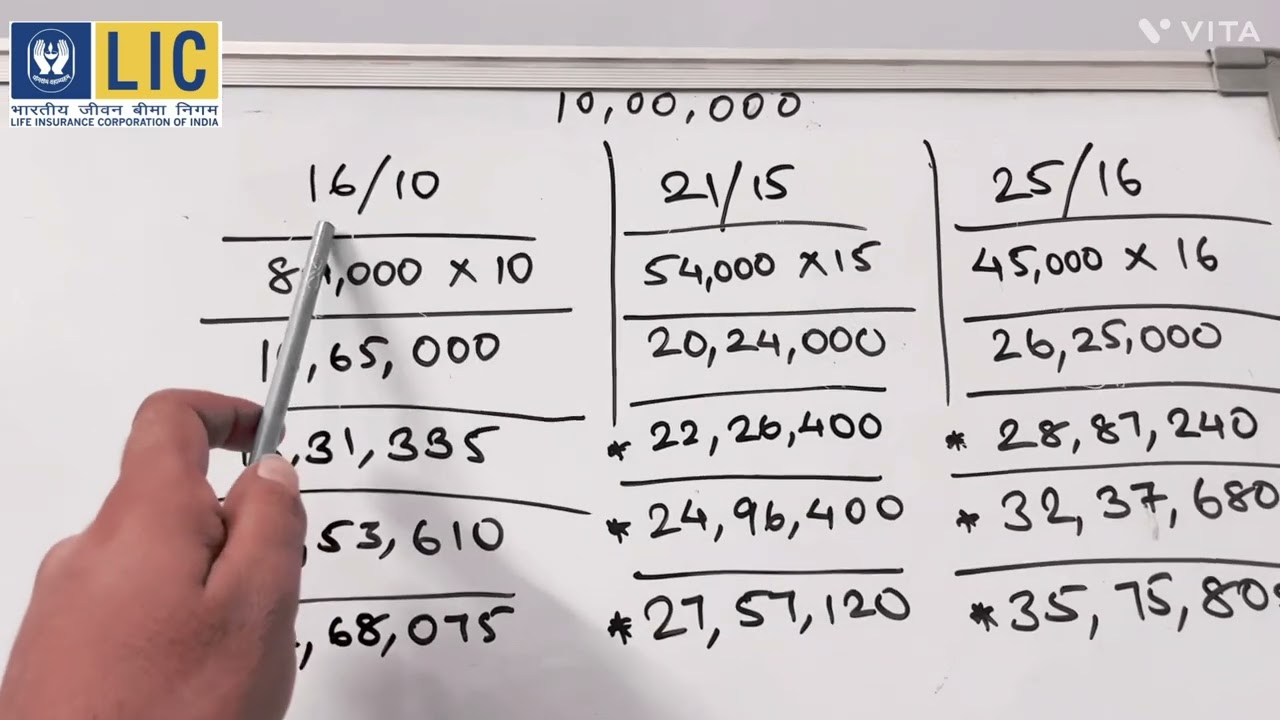 LIC
भारतीय जीवन बीमा निगम
LIFE INSURANCE CORPORATION OF INDIA
VITA
10,00,000
16/10
,000 × 10
,65,000
,31,335
,53,610
,68,075
21/15
54,000 ×15
20,24,000
* 22,26,400
* 24,96,400
* 27,57,120
25/16
45,000 × 16
26,25,000
* 28,87,240
* 32,37,680
* 35,75,80